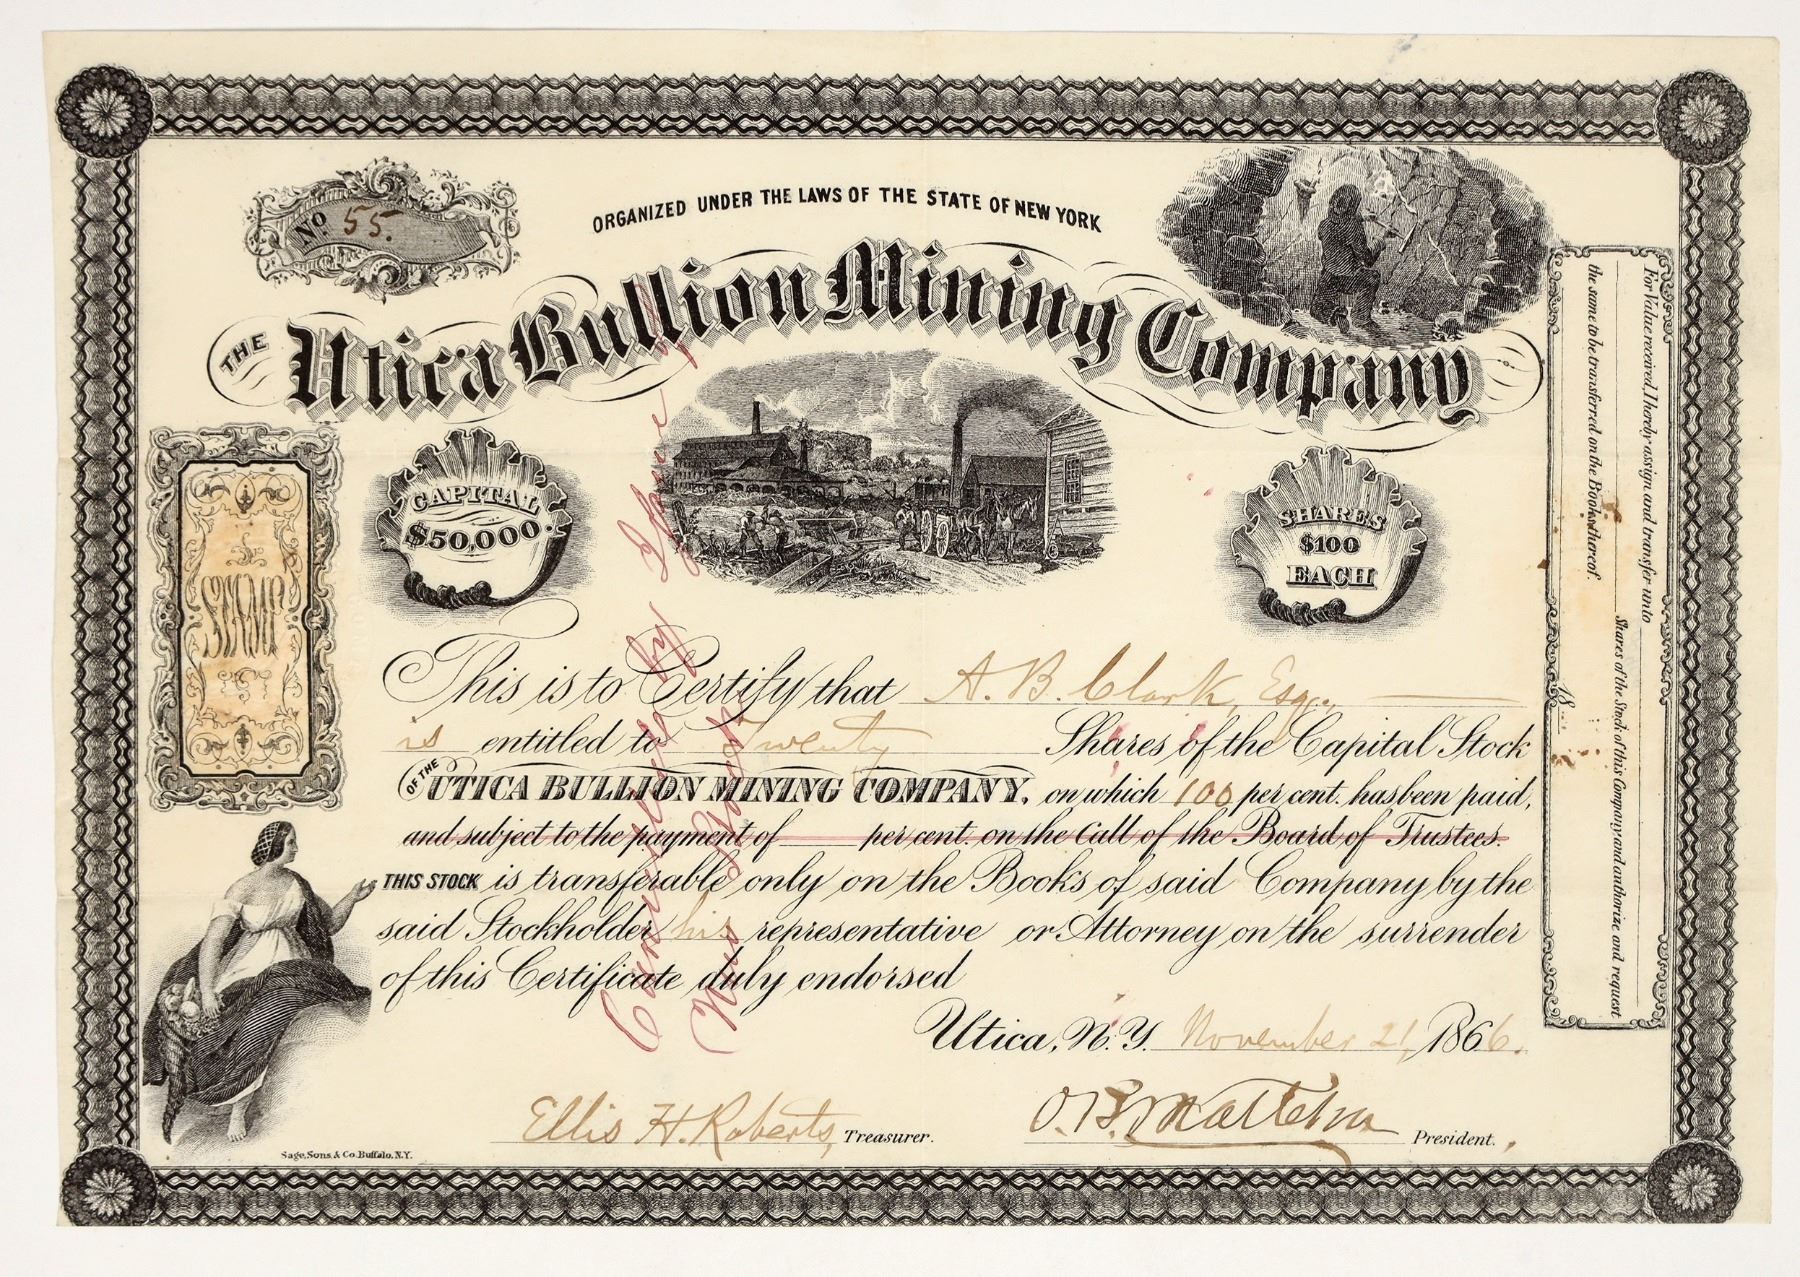 No. 55.
ORGANIZED UNDER THE LAWS OF THE STATE OF NEW YORK
THE Utica Bullion Mining Company
CAPITAL
$50,000.
SHARES
$100
EACH
STAMP
This is to Certify that A. B. Clark, Esq.,
is entitled to Twenty Shares of the Capital Stock
OF THE UTICA BULLION MINING COMPANY, on which 100 per cent. has been paid,
and subject to the payment of per cent. on the Call of the Board of Trustees.
THIS STOCK is transferable only on the Books of said Company by the
said Stockholder his representative or Attorney on the surrender
of this Certificate duly endorsed
Utica, N.Y. November 21, 1866.
Ellis H. Roberts, Treasurer.
O. B. Matteson President.
Sage, Sons, & Co. Buffalo, N.Y.
Cancelled by Issue of
New Stock
For Value received, I hereby assign and transfer unto
Shares of the Stock of this Company and authorize and request
the same to be transferred on the Books thereof.
18